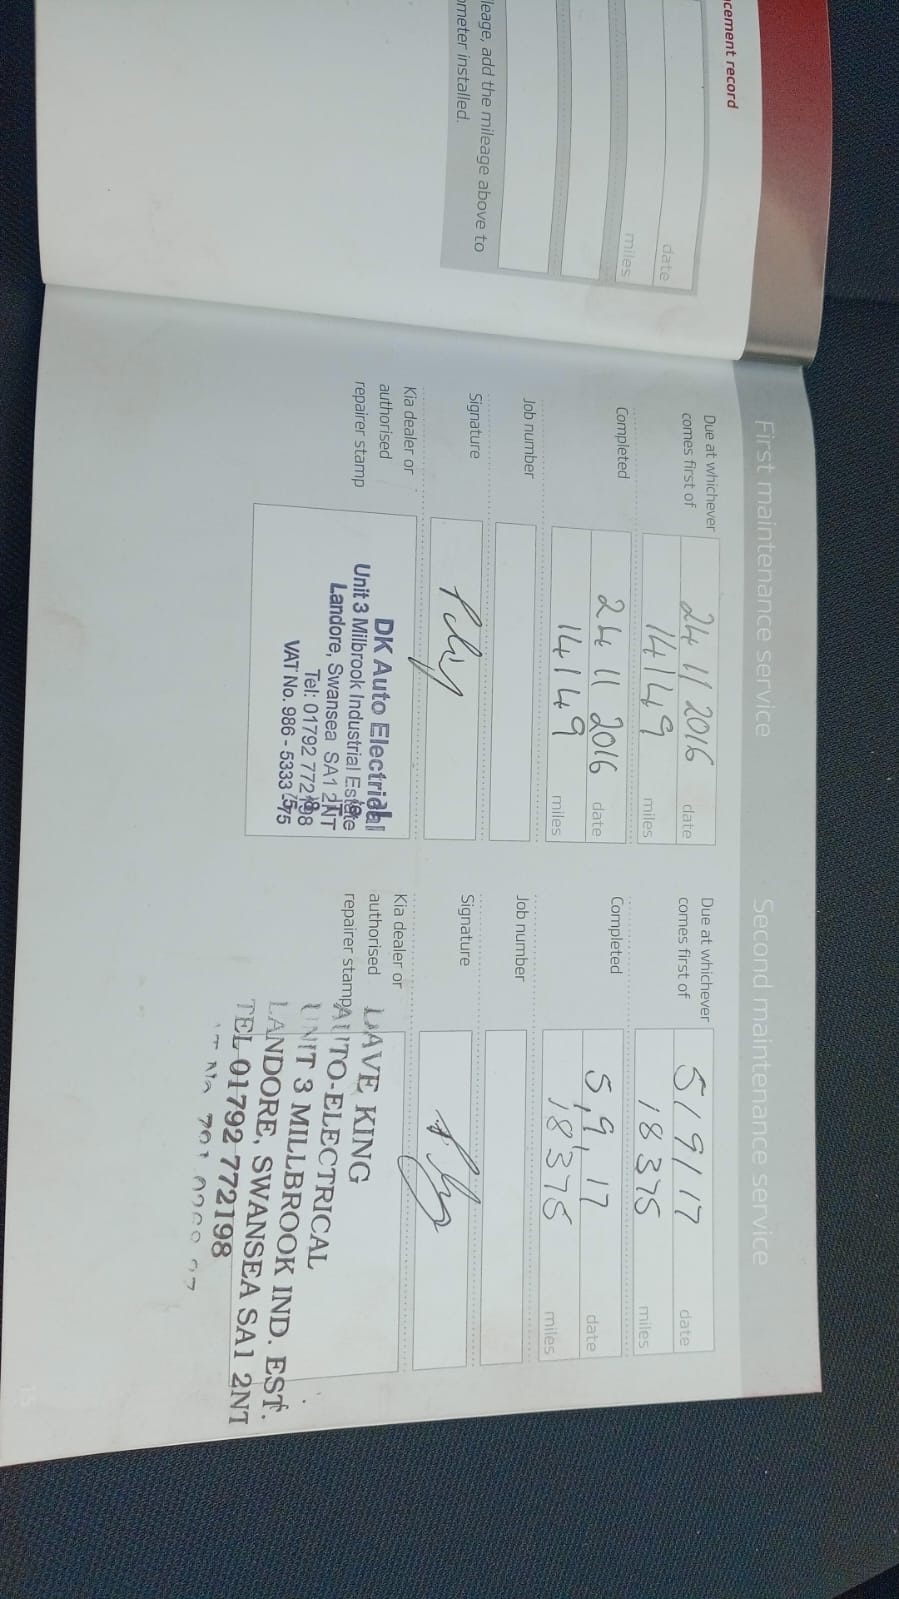 cement record
date
miles
leage, add the mileage above to
meter installed.
First maintenance service
Due at whichever
comes first of
24 11 2016 date
14149 miles
Completed
24 11 2016 date
14149 miles
Job number
Signature
Kia dealer or
authorised
repairer stamp
DK Auto Electrical
Unit 3 Milbrook Industrial Estate
Landore, Swansea SA1 2NT
Tel: 01792 772198
VAT No. 986 - 5333
Second maintenance service
Due at whichever
comes first of
5/9/17 date
18375 miles
Completed
5,9,17 date
18375 miles
Job number
Signature
Kia dealer or
authorised
repairer stamp
DAVE KING
AUTO-ELECTRICAL
UNIT 3 MILLBROOK IND. EST.
LANDORE, SWANSEA SA1 2NT
TEL 01792 772198
15